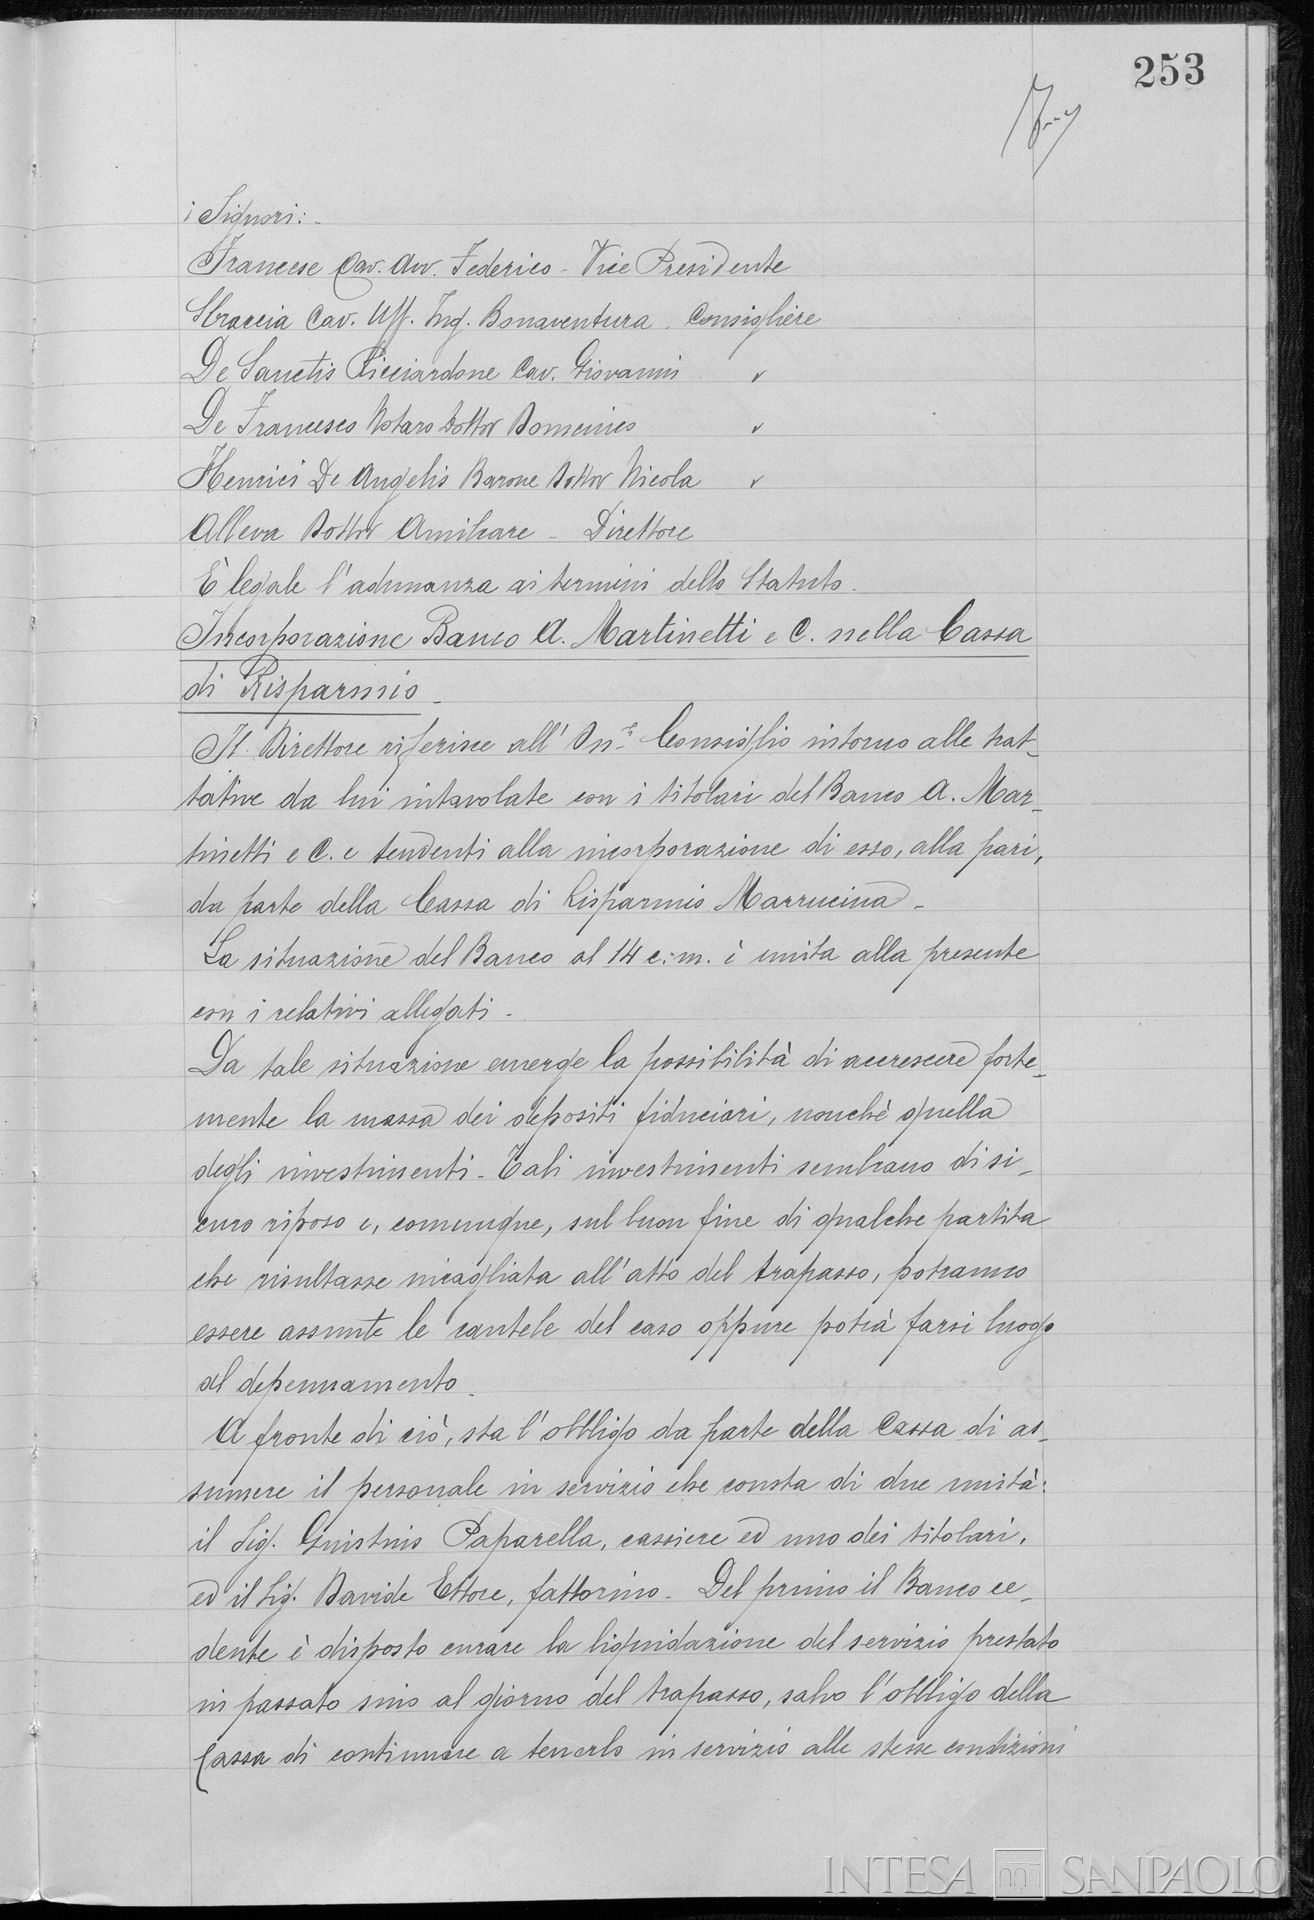 253
i Signori:-
Francese Cav. Avv. Federico - Vice Presidente
Sbraccia Cav. Uff. Ing. Bonaventura - Consigliere
De Sanctis Ricciardone Cav. Giovanni "
De Francesco Notaro Dottor Domenico "
Henrici De Angelis Barone Dottor Nicola "
Alleva Dottor Amilcare - Direttore
È legale l'adunanza ai termini dello Statuto.
Incorporazione Banco A. Martinetti e C. nella Cassa
di Risparmio -
Il Direttore riferisce all'On.le Consiglio intorno alle trat-
tative da lui intavolate con i titolari del Banco A. Mar-
tinetti e C. e tendenti alla incorporazione di esso, alla pari,
da parte della Cassa di Risparmio Marrucina -
La situazione del Banco al 14 c.m. è unita alla presente
con i relativi allegati -
Da tale situazione emerge la possibilità di accrescere forte-
mente la massa dei depositi fiduciari, nonchè quella
degli investimenti - Tali investimenti sembrano di si-
curo riposo e, comunque, sul buon fine di qualche partita
che risultasse incagliata all'atto del trapasso, potranno
essere assunte le cautele del caso oppure potrà farsi luogo
al depennamento.
A fronte di ciò, sta l'obbligo da parte della Cassa di as-
sumere il personale in servizio che consta di due unità:
il Sig. Giustino Paparella, cassiere ed uno dei titolari,
ed il Sig. Davide Ettore, fattorino - Del primo il Banco ce-
dente è disposto curare la liquidazione del servizio prestato
in passato sino al giorno del trapasso, salvo l'obbligo della
Cassa di continuare a tenerlo in servizio alle stesse condizioni
INTESA SANPAOLO